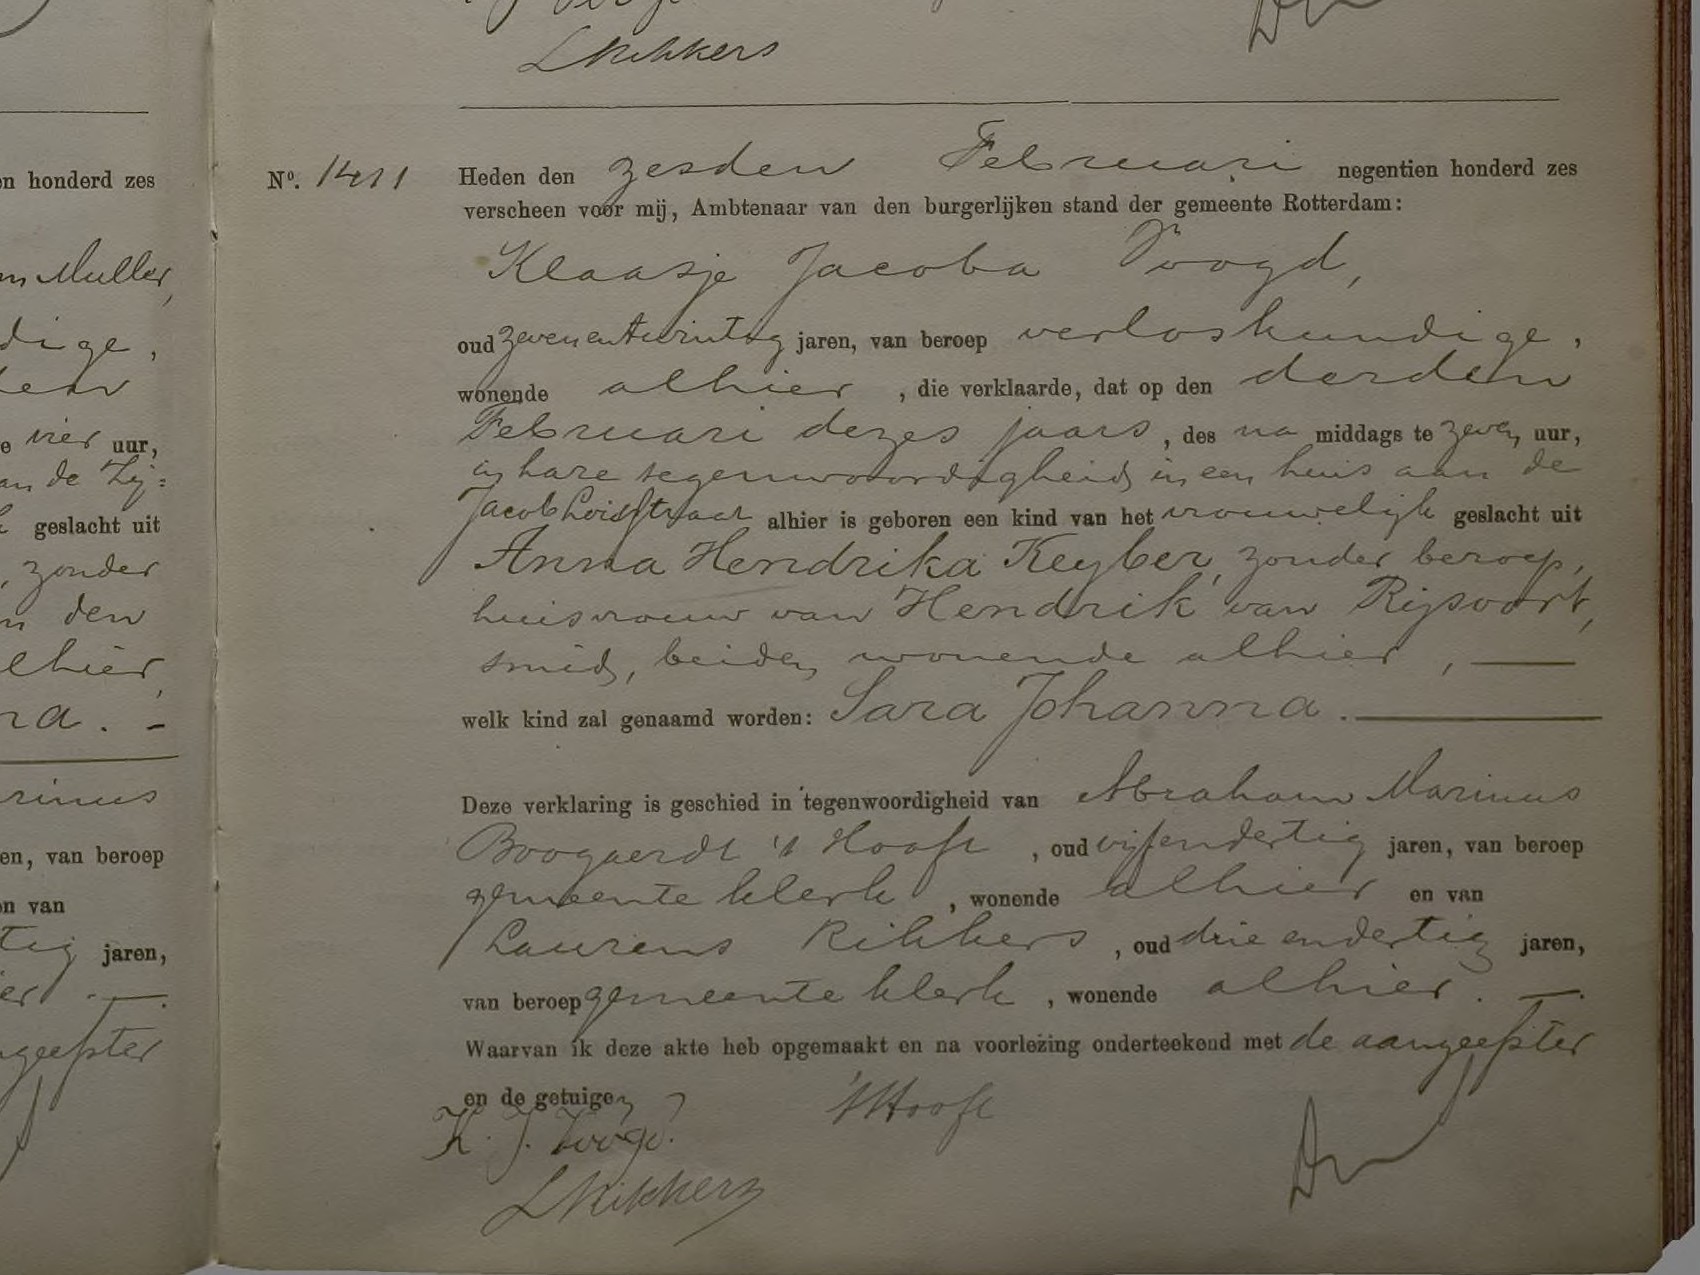 LRikkers
en honderd zes
Muller,
dige,
vier uur,
an de Zij=
geslacht uit
, zonder
den
alhier,
na. -
arinus
en, van beroep
en van
tig jaren,
er
aangeefster
No. 1411 Heden den zesden Februari negentien honderd zes
verscheen voor mij, Ambtenaar van den burgerlijken stand der gemeente Rotterdam:
Klaasje Jacoba Voogd,
oud zevenentwintig jaren, van beroep verloskundige,
wonende alhier, die verklaarde, dat op den derden
Februari dezes jaars, des na middags te zeven uur,
in hare tegenwoordigheid in een huis aan de
Jacob Loisstraat alhier is geboren een kind van het vrouwelijk geslacht uit
Anna Hendrika Keyber, zonder beroep,
huisvrouw van Hendrik van Rijsoort,
smid, beiden wonende alhier, —
welk kind zal genaamd worden: Sara Johanna. —
Deze verklaring is geschied in tegenwoordigheid van Abraham Marinus
Boogaerdt 't Hooft, oud vijfendertig jaren, van beroep
gemeenteklerk, wonende alhier en van
Laurens Rikkers, oud drieendertig jaren,
van beroep gemeenteklerk, wonende alhier. —.
Waarvan ik deze akte heb opgemaakt en na voorlezing onderteekend met de aangeefster
en de getuigen
K. J. Voogd. 't Hooft
LRikkers